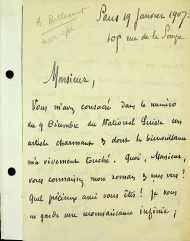 Paris 19 Janvier 1907.
rue de la Pompe
Monsieur,
Vous m'avez consacré dans le numéro
du 9 Décembre du National Suisse un
article charmant & dont la bienveillance
m'a vivement touché. Quoi, Monsieur,
vous connaissez mon roman & mes vers ?
Quel précieux ami vous êtes ! Je vous
en garde une reconnaissance infinie ;